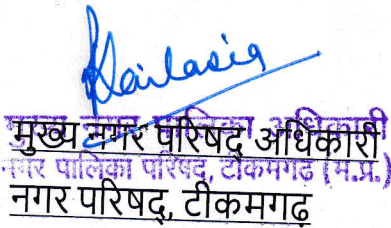 मुख्य नगर पालिका अधिकारी
मुख्य नगर परिषद् अधिकारी
नगर पालिका परिषद, टीकमगढ (म.प्र.)
नगर परिषद्, टीकमगढ़